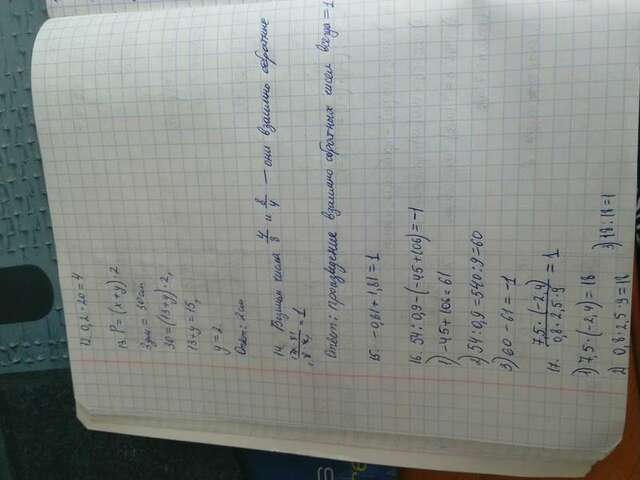 12. 0,2 · 20 = 4
13. P = (x+y) · 2
3дм = 30см
30 = (13+y) · 2,
13+y = 15,
y = 2
Ответ: 2см
14. Возьмём числа 4/8 и 8/4 — они взаимно обратные
= 1
Ответ: произведение взаимно обратных чисел всегда = 1
15. -0,81 + 1,81 = 1
16. 54 : 0,9 - (-45 + 106) = -1
1) -45 + 106 = 61
2) 54 : 0,9 = 540 : 9 = 60
3) 60 - 61 = -1
17. 7,5 · (-2,4) / 0,8 · 2,5 · 9 = 1
1) 7,5 · (-2,4) = 18
2) 0,8 · 2,5 · 9 = 18
3) 18 : 18 = 1